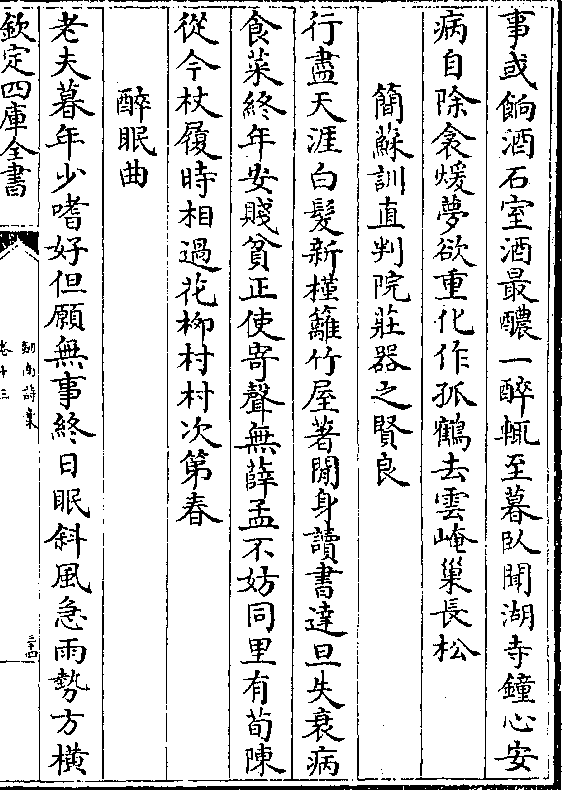 事或餉酒石室酒最醲一醉輒至暮臥聞湖寺鐘心安
病自除衾煖夢欲重化作孤鶴去雲崦巢長松
簡蘇訓直判院莊器之賢良
行盡天涯白髮新槿籬竹屋著閒身讀書達旦失衰病
食菜終年安賤貧正使寄聲無薛孟不妨同里有荀陳
從今杖履時相過花柳村村次第春
醉眠曲
老夫暮年少嗜好但願無事終日眠斜風急雨勢方橫
欽定四庫全書
劒南詩稾
卷十三
三十四